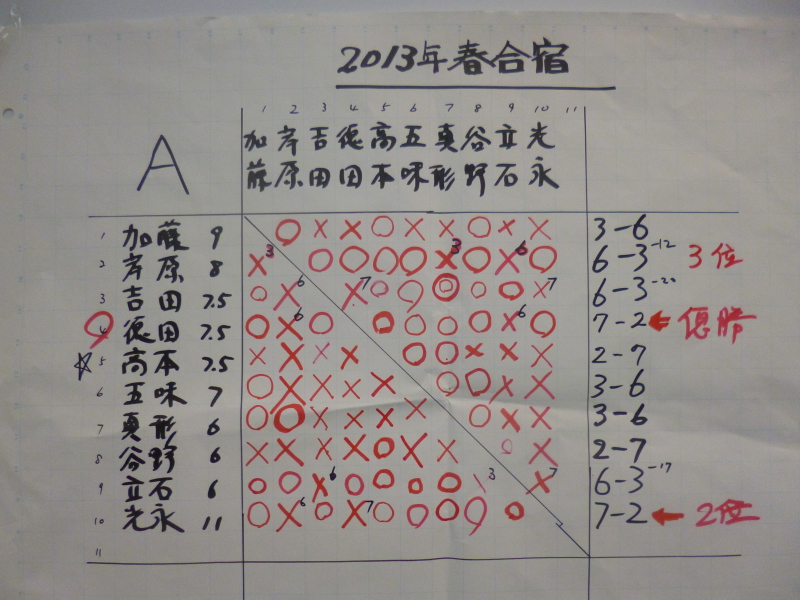 2013年春合宿
1 2 3 4 5 6 7 8 9 10 11
A
加 岸 吉 徳 高 五 真 谷 立 光
藤 原 田 田 本 味 形 野 石 永
1 加藤 9 ○ × × ○ × × ○ × × 3-6
2 岸原 8 ×3 ○ ○ ○ ○ ×3 ○ ×6 ○ 6-3 -12 3位
3 吉田 7.5 ○ ×6 ×7 ○ ○ ◎ ○ ○ ×7 6-3 -20
4 徳田 7.5 ○ ×6 ○ ○ ○ ○ ○ ×6 ○ 7-2 ← 優勝
☆ 5 高本 7.5 × × × × ○ ○ × × × 2-7
6 五味 7 ○ × × × × ○ ○ × × 3-6
7 真形 6 ○ ○ × × × × ○ × × 3-6
8 谷野 6 × × × × ○ × × ○ × 2-7
9 立石 6 ○ ○ ×6 ○ ○ ○ ○ \3 ×7 6-3 -17
10 光永 11 ○ ×6 ○ ×7 ○ ○ ○ ○ ○ 7-2 ← 2位
11